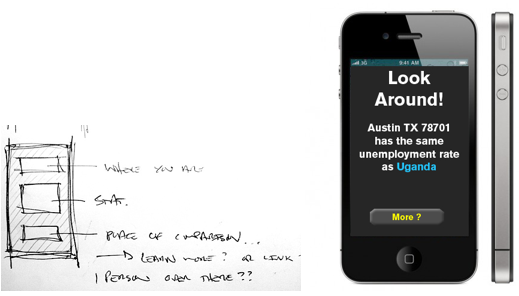 WHERE YOU ARE
STAT.
PLACE OF COMPARISON...
LEARN MORE? OR LINK
1 PERSON OVER THERE??
3G 9:41 AM
Look
Around!
Austin TX 78701
has the same
unemployment rate
as Uganda
More ?